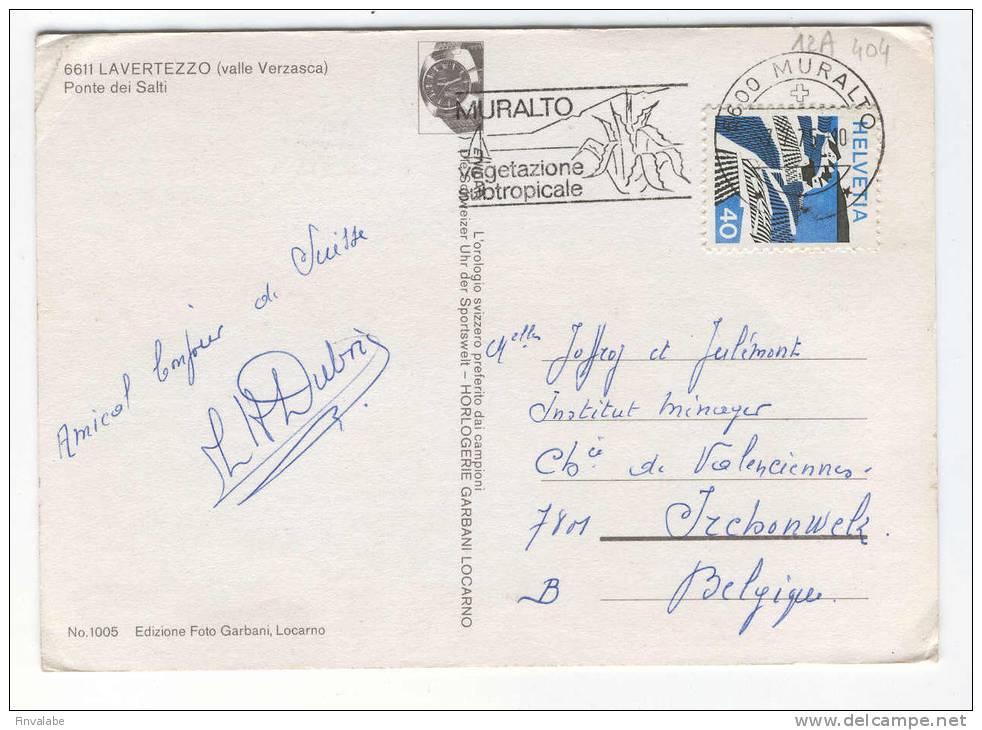 12A 404
6611 LAVERTEZZO (valle Verzasca)
Ponte dei Salti
MURALTO
vegetazione
subtropicale
6600 MURALTO
10
HELVETIA
40
L'orologio svizzero preferito dai campioni
Die Schweizer Uhr der Sportswelt – HORLOGERIE GARBANI LOCARNO
Amical bonjour de Suisse
Melles Joffroy et Julémont
Institut Ménager
Chée de Valenciennes.
7801 Irchonwelz
B Belgique.
No.1005 Edizione Foto Garbani, Locarno
finvalabe
www.delcampe.net